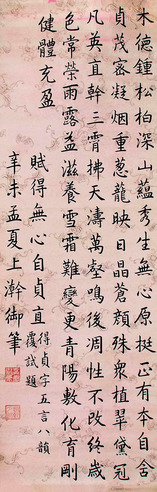 木德鍾松柏深山蘊秀生無心原挺正有本自含
貞茂密凝烟重蔥蘢映日晶蒼顏殊衆植翠黛冠
凡英直幹三霄拂天濤萬壑鳴後凋性不改終歲
色常榮雨露益滋養雪霜難變更青陽敷化育剛
健體充盈
賦得無心自貞直
得貞字五言八韻
覆試題
辛未孟夏上澣御筆